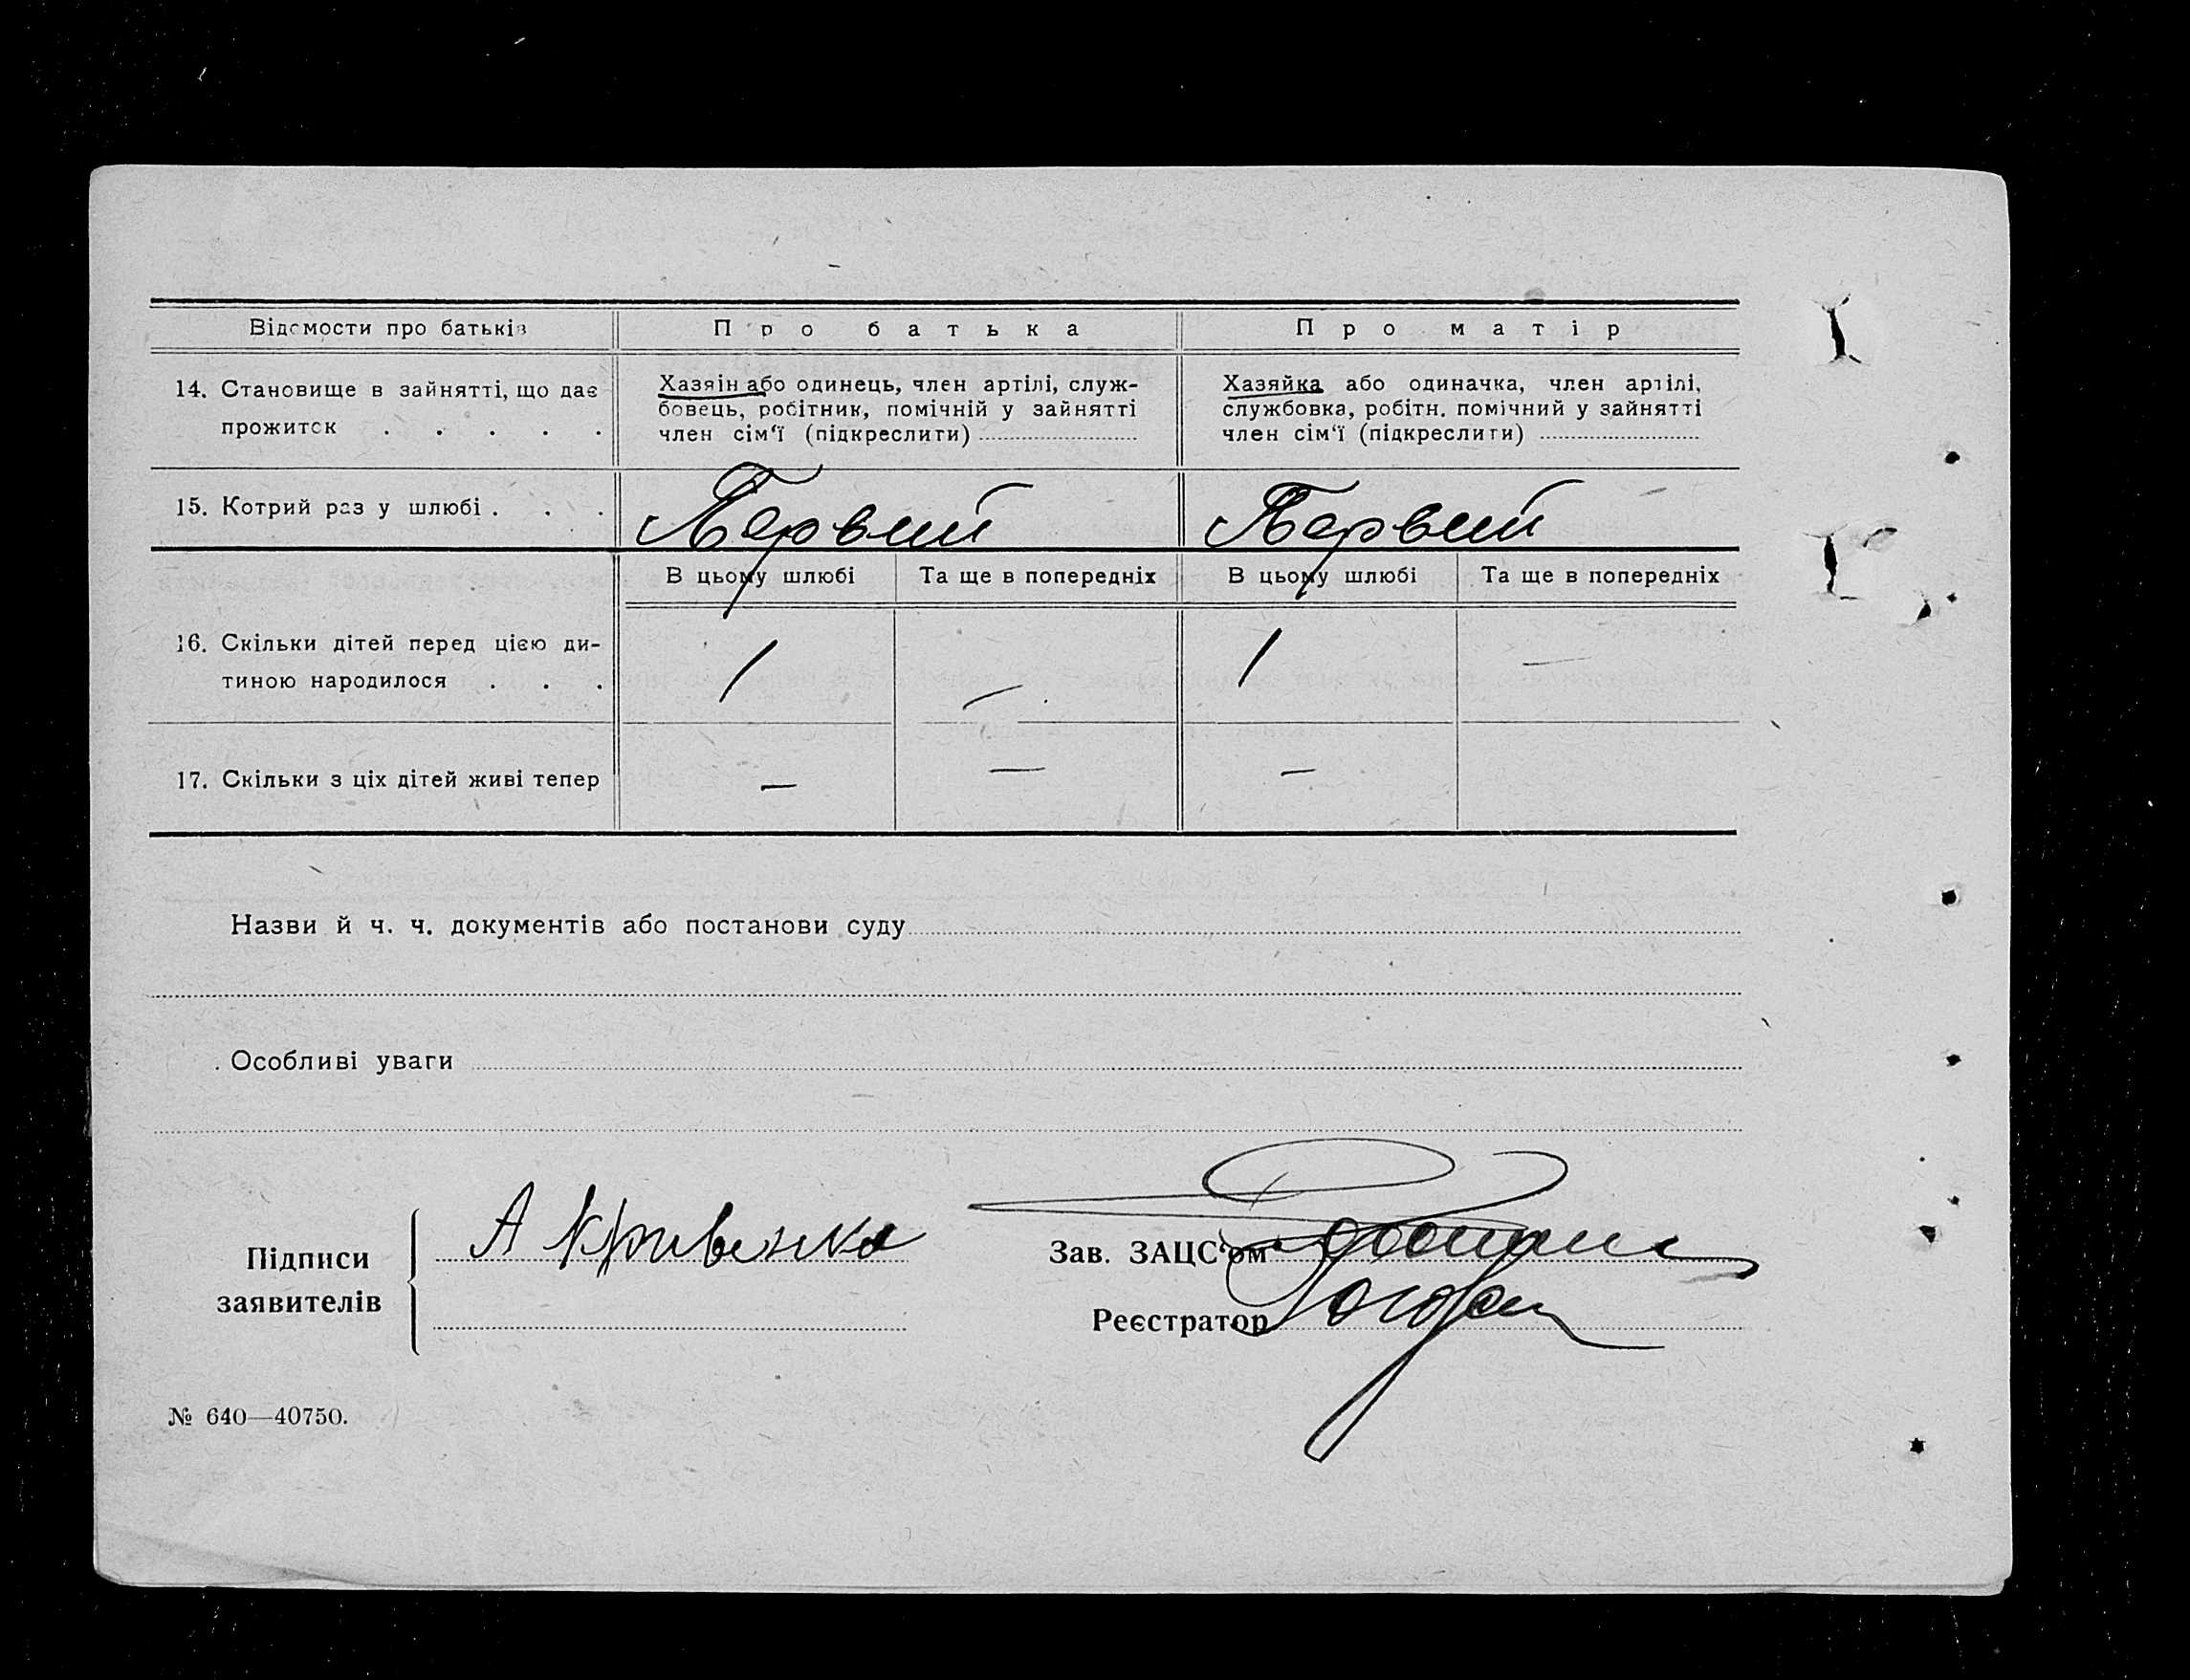 Відомости про батьків
Про батька
Про матір
14. Становище в зайнятті, що дає
прожиток . . . . .
Хазяін або одинець, член артілі, служ-
бовець, робітник, помічній у зайнятті
член сім'ї (підкреслити)
Хазяйка або одиначка, член артілі,
службовка, робітн. помічний у зайнятті
член сім'ї (підкреслити)
15. Котрий раз у шлюбі . . .
Первий
Первий
В цьому шлюбі
Та ще в попередніх
В цьому шлюбі
Та ще в попередніх
16. Скільки дітей перед цією ди-
тиною народилося . . .
1
—
1
—
17. Скільки з ціх дітей живі тепер
—
—
—
Назви й ч. ч. документів або постанови суду
Особливі уваги
Підписи
заявителів
А Кривенко
Зав. ЗАЦС'ом
Реєстратор
№ 640—40750.